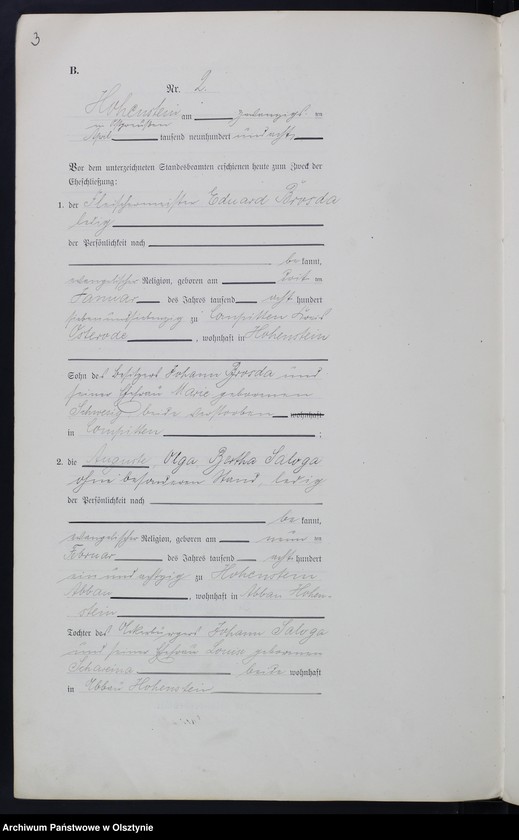 3
B.
Nr. 2.
Hohenstein am zwanzigst en
in Ostpreußen
April tausend neunhundert und acht
Vor dem unterzeichneten Standesbeamten erschienen heute zum Zweck der
Eheschließung:
1. der Fleischermeister Eduard Brosda
ledig
der Persönlichkeit nach
be kannt,
evangelischer Religion, geboren am en
Januar des Jahres tausend acht hundert
siebenundsiebenzig zu Kreis
Osterode, wohnhaft in Hohenstein
Sohn des Besitzers Johann Brosda und
seiner Ehefrau Marie geborenen
beide verstorben wohnhaft
in ;
2. die Auguste, Olga Bertha Saloga
ohne besonderen Stand, ledig
der Persönlichkeit nach
be kannt,
evangelischer Religion, geboren am neun en
Februar des Jahres tausend acht hundert
ein und achtzig zu Hohenstein
Abbau, wohnhaft in Abbau Hohen-
stein
Tochter des Ackerbürgers Johann Saloga
und seiner Ehefrau Louise geborenen
beide wohnhaft
in Abbau Hohenstein
Archiwum Państwowe w Olsztynie